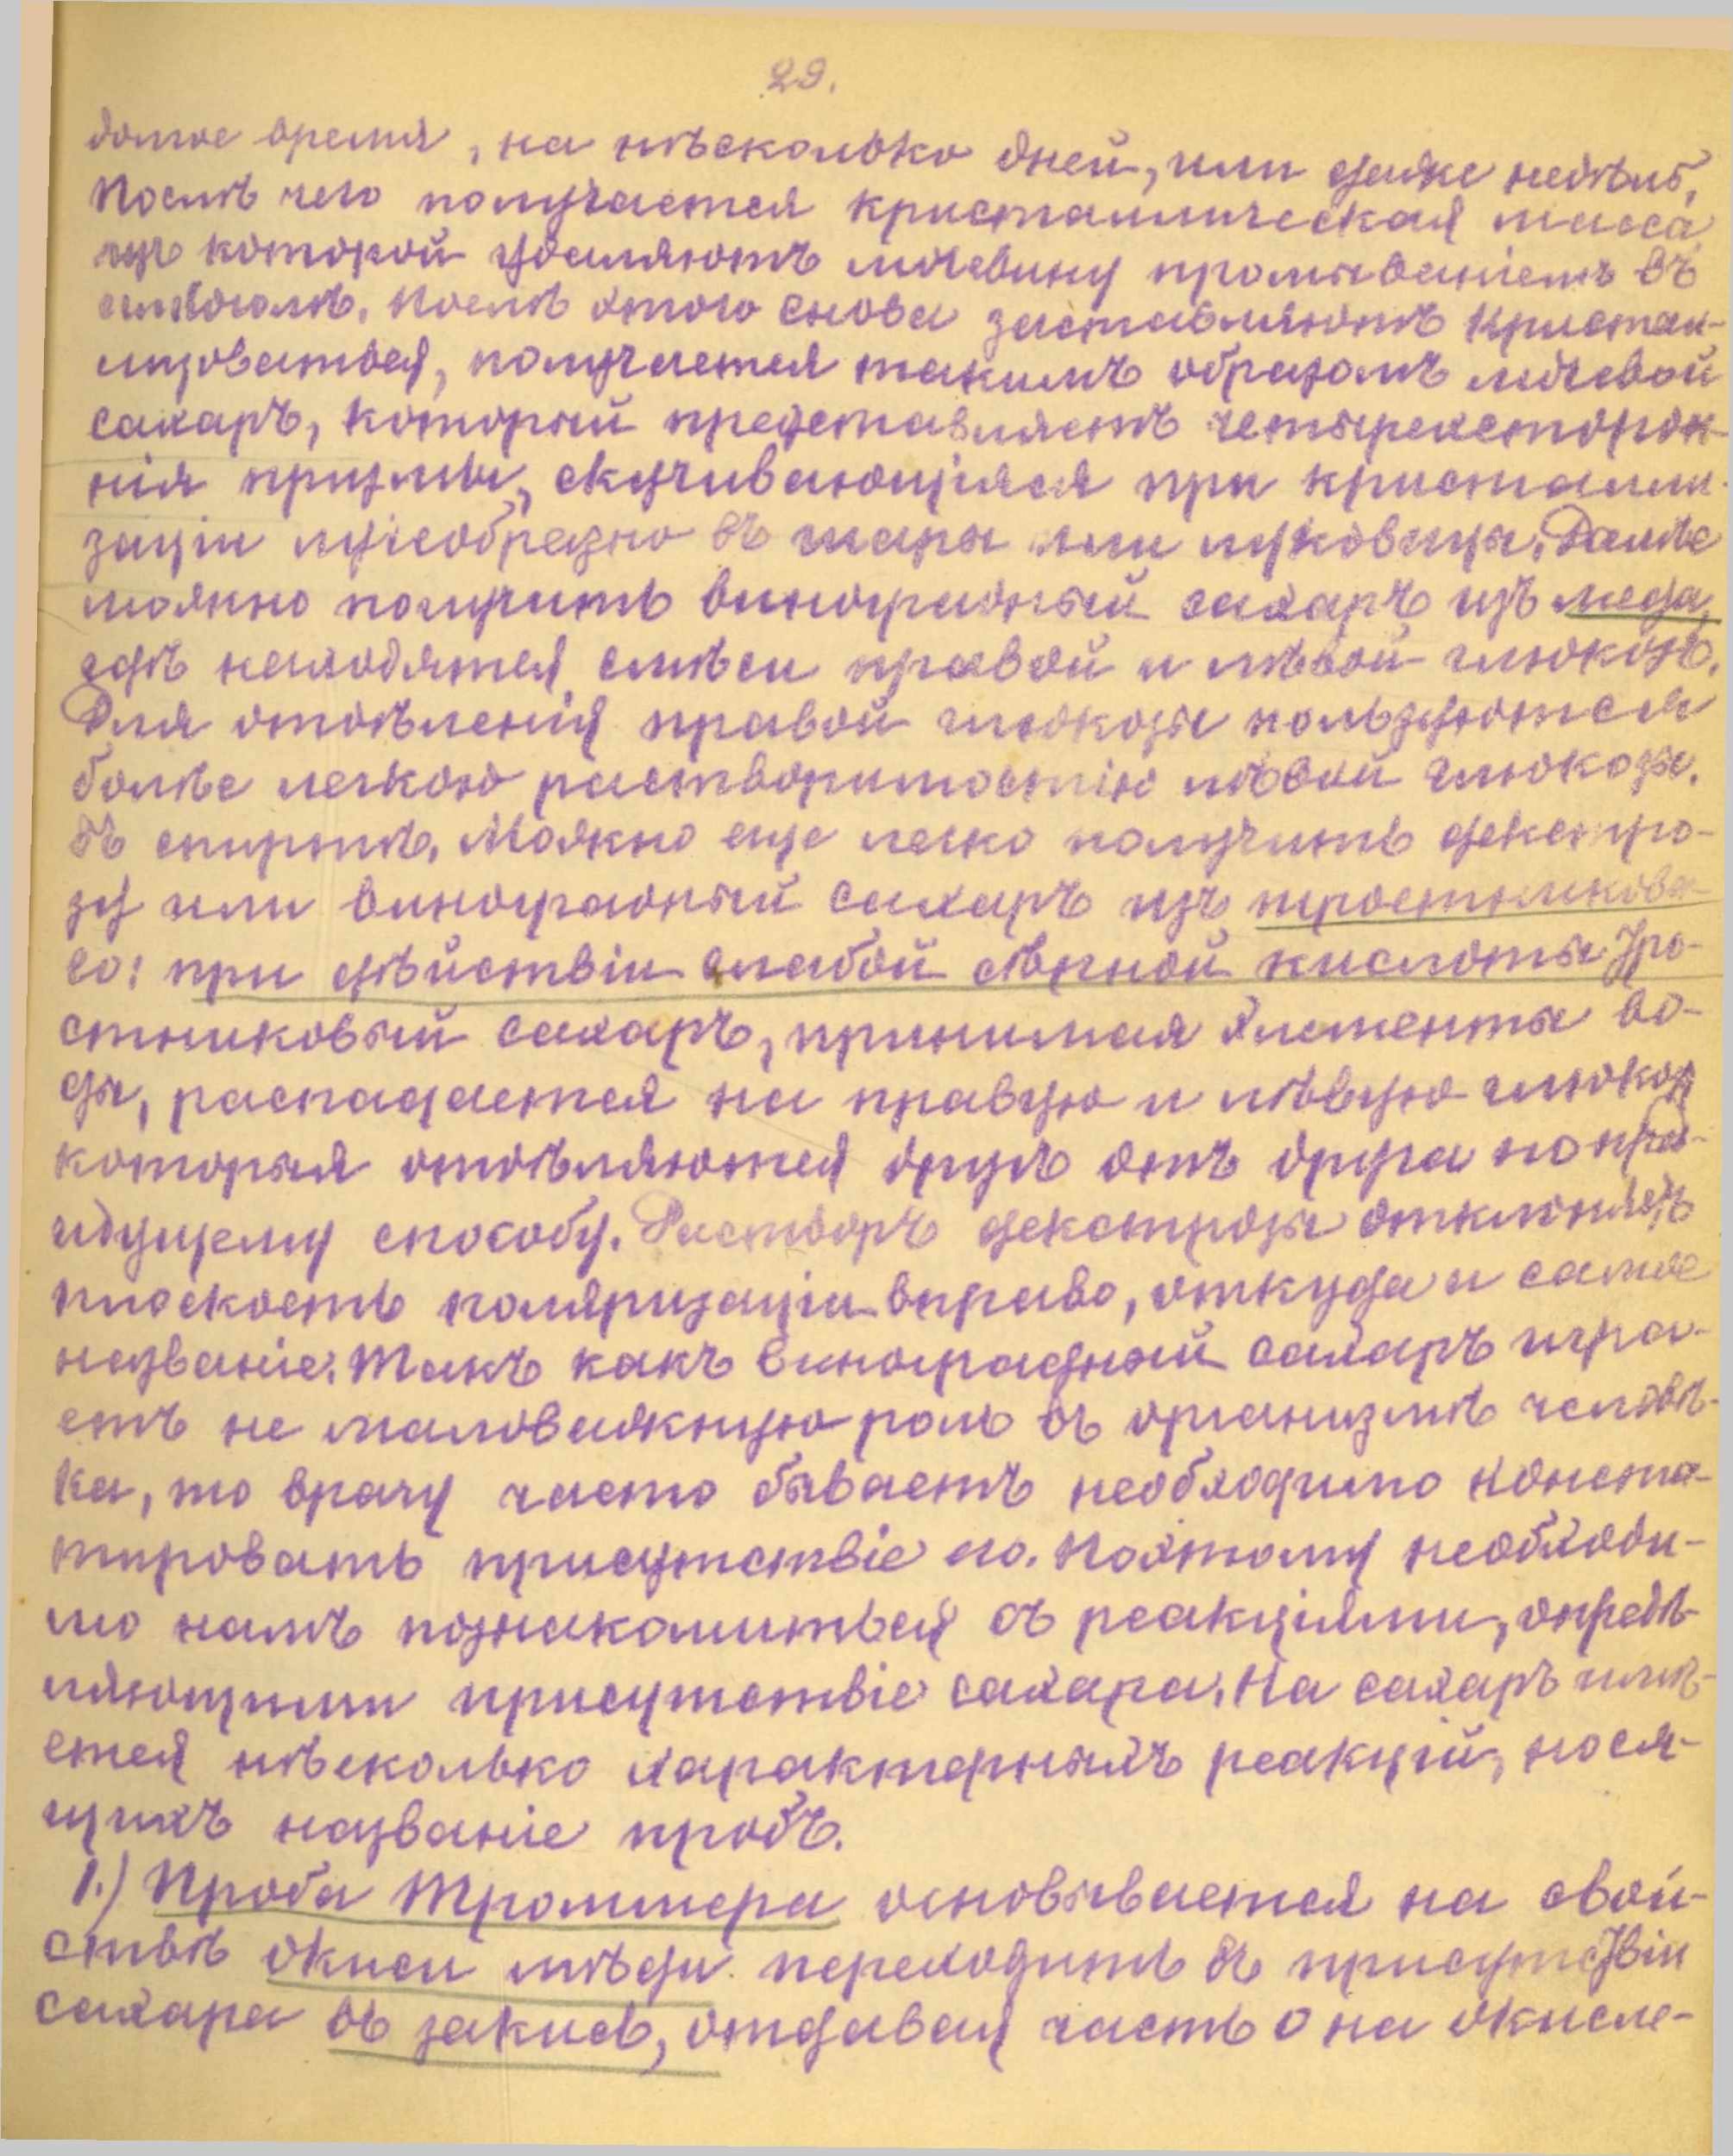 29.
долгое время, на нѣсколько дней, или даже недѣль,
Послѣ чего получается кристаллическая масса,
изъ которой удаляютъ мочевину промываніемъ въ
алкоголѣ. Послѣ этого снова заставляютъ кристал-
лизоваться, получается такимъ образомъ мочевой
сахаръ, который представляетъ четырехсторон-
нія призмы, скучивающіяся при кристалли-
заціи лучеобразно въ шары или луковицы. Далѣе
можно получить виноградный сахаръ изъ меда,
гдѣ находятся смѣси правой и лѣвой глюкозъ.
Для отдѣленія правой глюкозы пользуются
болѣе легкою растворимостію лѣвой глюкозы.
въ спиртѣ. Можно еще легко получить декстро-
зу или виноградный сахаръ изъ тростниково-
го: при дѣйствіи слабой сѣрной кислоты тро-
стниковый сахаръ, принимая элементы во-
ды, распадается на правую и лѣвую глюкозу
которыя отдѣляются другъ отъ друга по пред-
идущему способу. Растворъ декстрозы отклоняетъ
плоскость поляризаціи вправо, откуда и самое
названіе. Такъ какъ виноградный сахаръ игра-
етъ не маловажную роль въ организмѣ человѣ-
ка, то врачу часто бываетъ необходимо конста-
тировать присутствіе его. Поэтому необходи-
мо намъ познакомиться съ реакціями, опредѣ-
ляющими присутствіе сахара. На сахаръ имѣ-
ется нѣсколько характерныхъ реакцій, нося-
щихъ названіе пробъ.
1.) Проба Троммера основывается на свой-
ствѣ окиси мѣди переходить въ присутствіи
сахара въ закись, отдавая часть О на окисле-